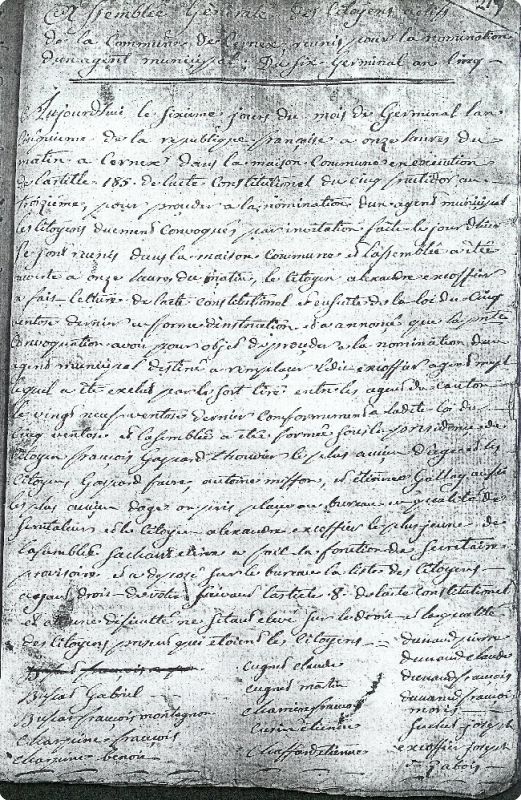 219
Assemblée Générale des Citoyens actifs
de la Commune de Cernex, reunis pour la nomination
d'un agent municipal, Du six Germinal an Cinq
Aujourdhui le sixieme jours du mois de Germinal lan
cinquieme de la republique francoise a onze heures du
matin a Cernex dans la maison Commune en execution
de lartille 185. de lacte Constitutionel du Cinq fruitidor an
troizieme, pour proceder a la nomination dun agent municipal
les citoyens duement Convoqués par invitation faite le jour d'hier
se sont reunis dans la maison Commune et lassemblée a été
ouverte a onze heures du matin, le Citoyen alexandre excoffier
a fait lecture de lacte constitutionel et ensuite de la loi du Cinq
ventose dernier en forme dinstruction et a annoncé que la pnte
Convoquation avoit pour objet de proceder a la nomination dun
agent municipal destiné a remplacer ledit excoffier agent mpal
lequel a été exclus par le sort tiré entre les agens du canton
le vingt neuf ventose dernier conformement a ladite loi du
cinq ventose et lassemblée a été formée sous le presidence de
Citoyen françois Gaspard thouvier le plus ancien d'age et les
Citoyens Gaspard favre, antoine miffon, et etienne Gallay aussi
les plus ancien dages on pris place au bureau en qualité de
Scrutateurs et le Citoyen alexandre excoffier le plus jeune de
Lassemblée Sachant ecrire a fait la fonction de Secretaire
provisoire et a deposé sur le bureau la liste des Citoyens
ayant droit de voter suivant lartille 8. de lacte Constitutionel
et aucune difficulté ne s'etant elevé sur le droit et la qualité
des Citoyens presens qui etoient les Citoyens
Bussat Gabriel
Bussat francois montagnon
Charriere françois
Charriere benoit
Cugnet claude
Cugnet martin
Charriere francois
etienne
Chaffard etienne
dunand pierre
dunand claude
dunand francois
dunand francois
Juclut joseph
excoffier joseph